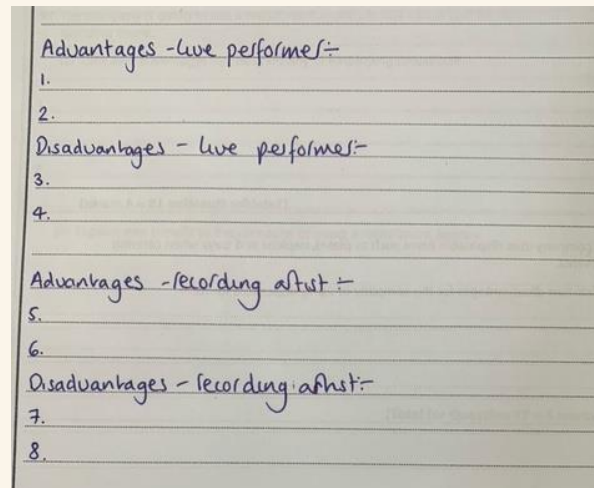 Advantages - live performer:-
1.
2.
Disadvantages - live performer:-
3.
4.
Advantages - recording artist:-
5.
6.
Disadvantages - recording artist:-
7.
8.